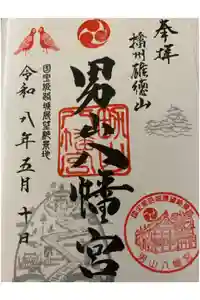 奉拝
播州雄徳山
男山八幡宮
国宝姫路城展望勝景地
令和八年五月十日
男山八幡宮